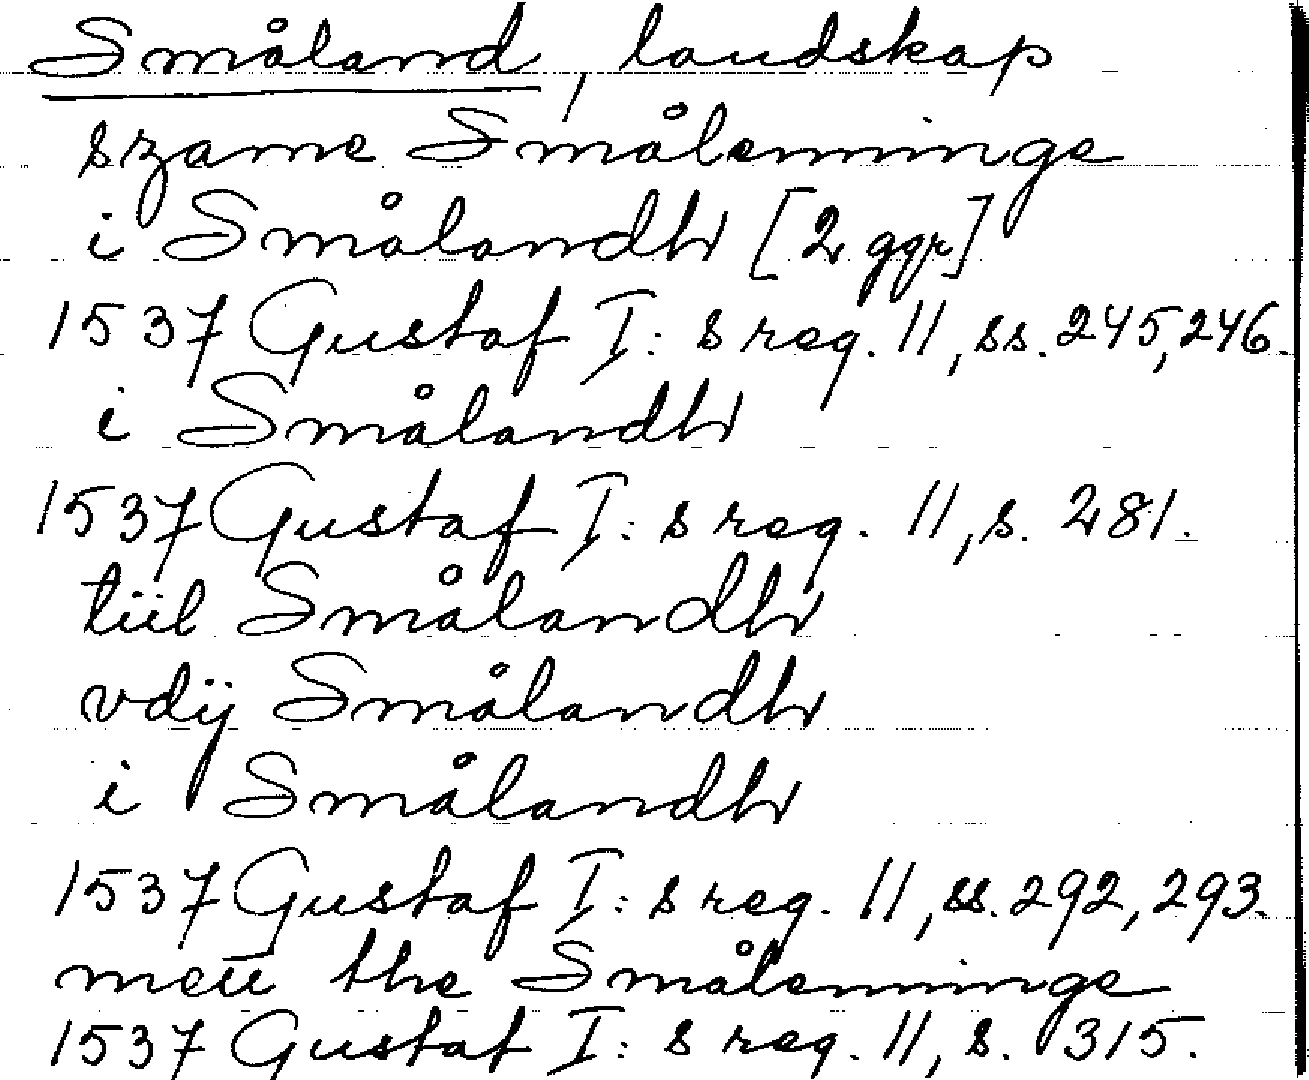 Småland, landskap
szame Smålennинge
i Smålandh [2 ggr]
1537 Gustaf I:s reg. 11, ss. 245, 246.
i Smålandh
1537 Gustaf I:s reg. 11, s. 281.
tiil Smålandh
vdij Smålandh
i Smålandh
1537 Gustaf I:s reg. 11, ss. 292, 293.
men̄ the Smålenninge
1537 Gustaf I:s reg. 11, s. 315.